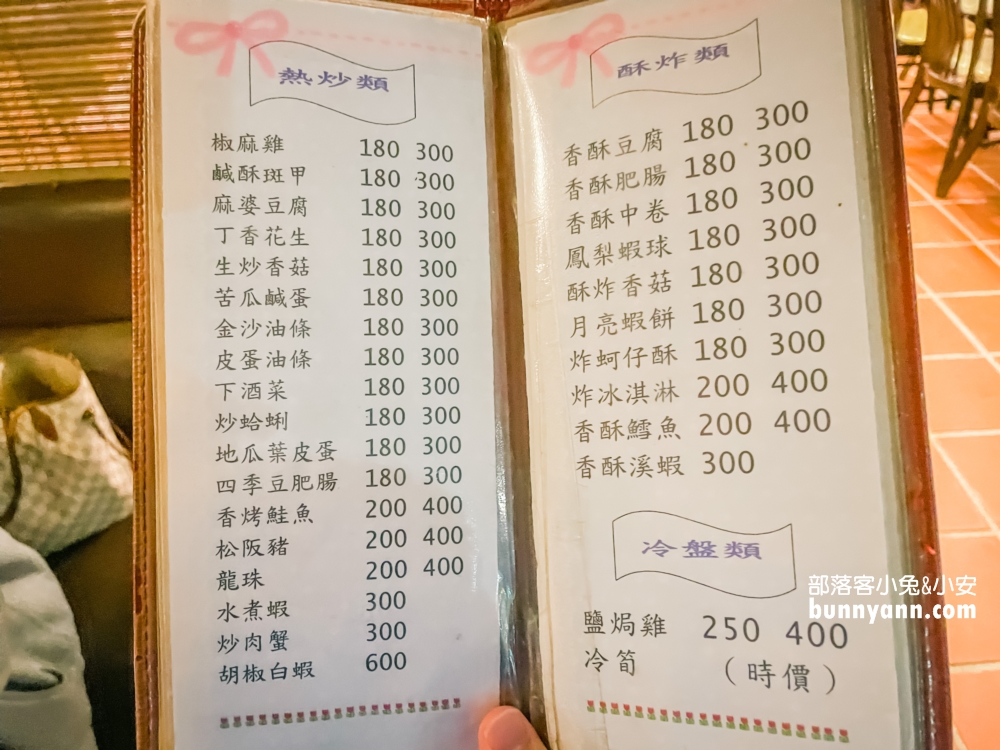 熱炒類
椒麻雞 180 300
鹹酥斑甲 180 300
麻婆豆腐 180 300
丁香花生 180 300
生炒香菇 180 300
苦瓜鹹蛋 180 300
金沙油條 180 300
皮蛋油條 180 300
下酒菜 180 300
炒蛤蜊 180 300
地瓜葉皮蛋 180 300
四季豆肥腸 180 300
香烤鮭魚 200 400
松阪豬 200 400
龍珠 200 400
水煮蝦 300
炒肉蟹 300
胡椒白蝦 600
酥炸類
香酥豆腐 180 300
香酥肥腸 180 300
香酥中卷 180 300
鳳梨蝦球 180 300
酥炸香菇 180 300
月亮蝦餅 180 300
炸蚵仔酥 180 300
炸冰淇淋 200 400
香酥鱈魚 200 400
香酥溪蝦 300
冷盤類
鹽焗雞 250 400
冷筍 （時價）
部落客小兔&小安
bunnyann.com